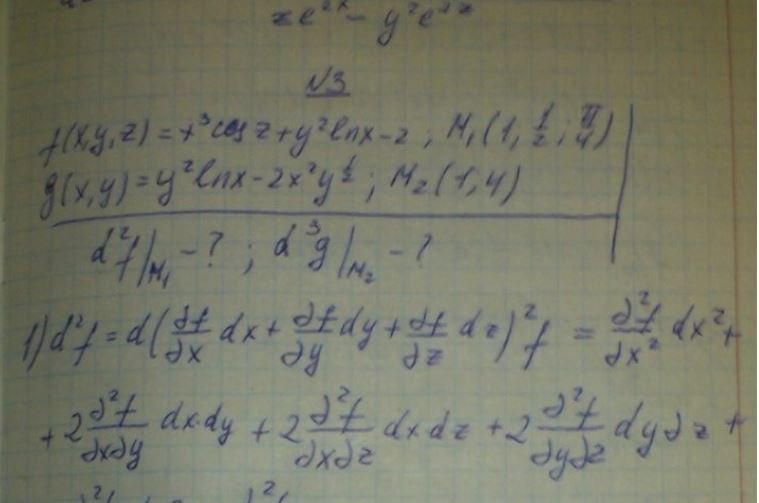 ze^{2x} - y^2e^{2z}
№3
f(x,y,z)=x^3cos z+y^2lnx-2; M_1(1, 1/2; π/4)
g(x,y)=y^2lnx-2x^2y^{1/2}; M_2(1,4)
d^2f|_{M_1} - ? ; d^3g|_{M_2} - ?
1) d^2f = d(∂f/∂x dx + ∂f/∂y dy + ∂f/∂z dz)^2 f = ∂^2f/∂x^2 dx^2 +
+ 2 ∂^2f/∂x∂y dx·dy + 2 ∂^2f/∂x∂z dx dz + 2 ∂^2f/∂y∂z dy ∂z +